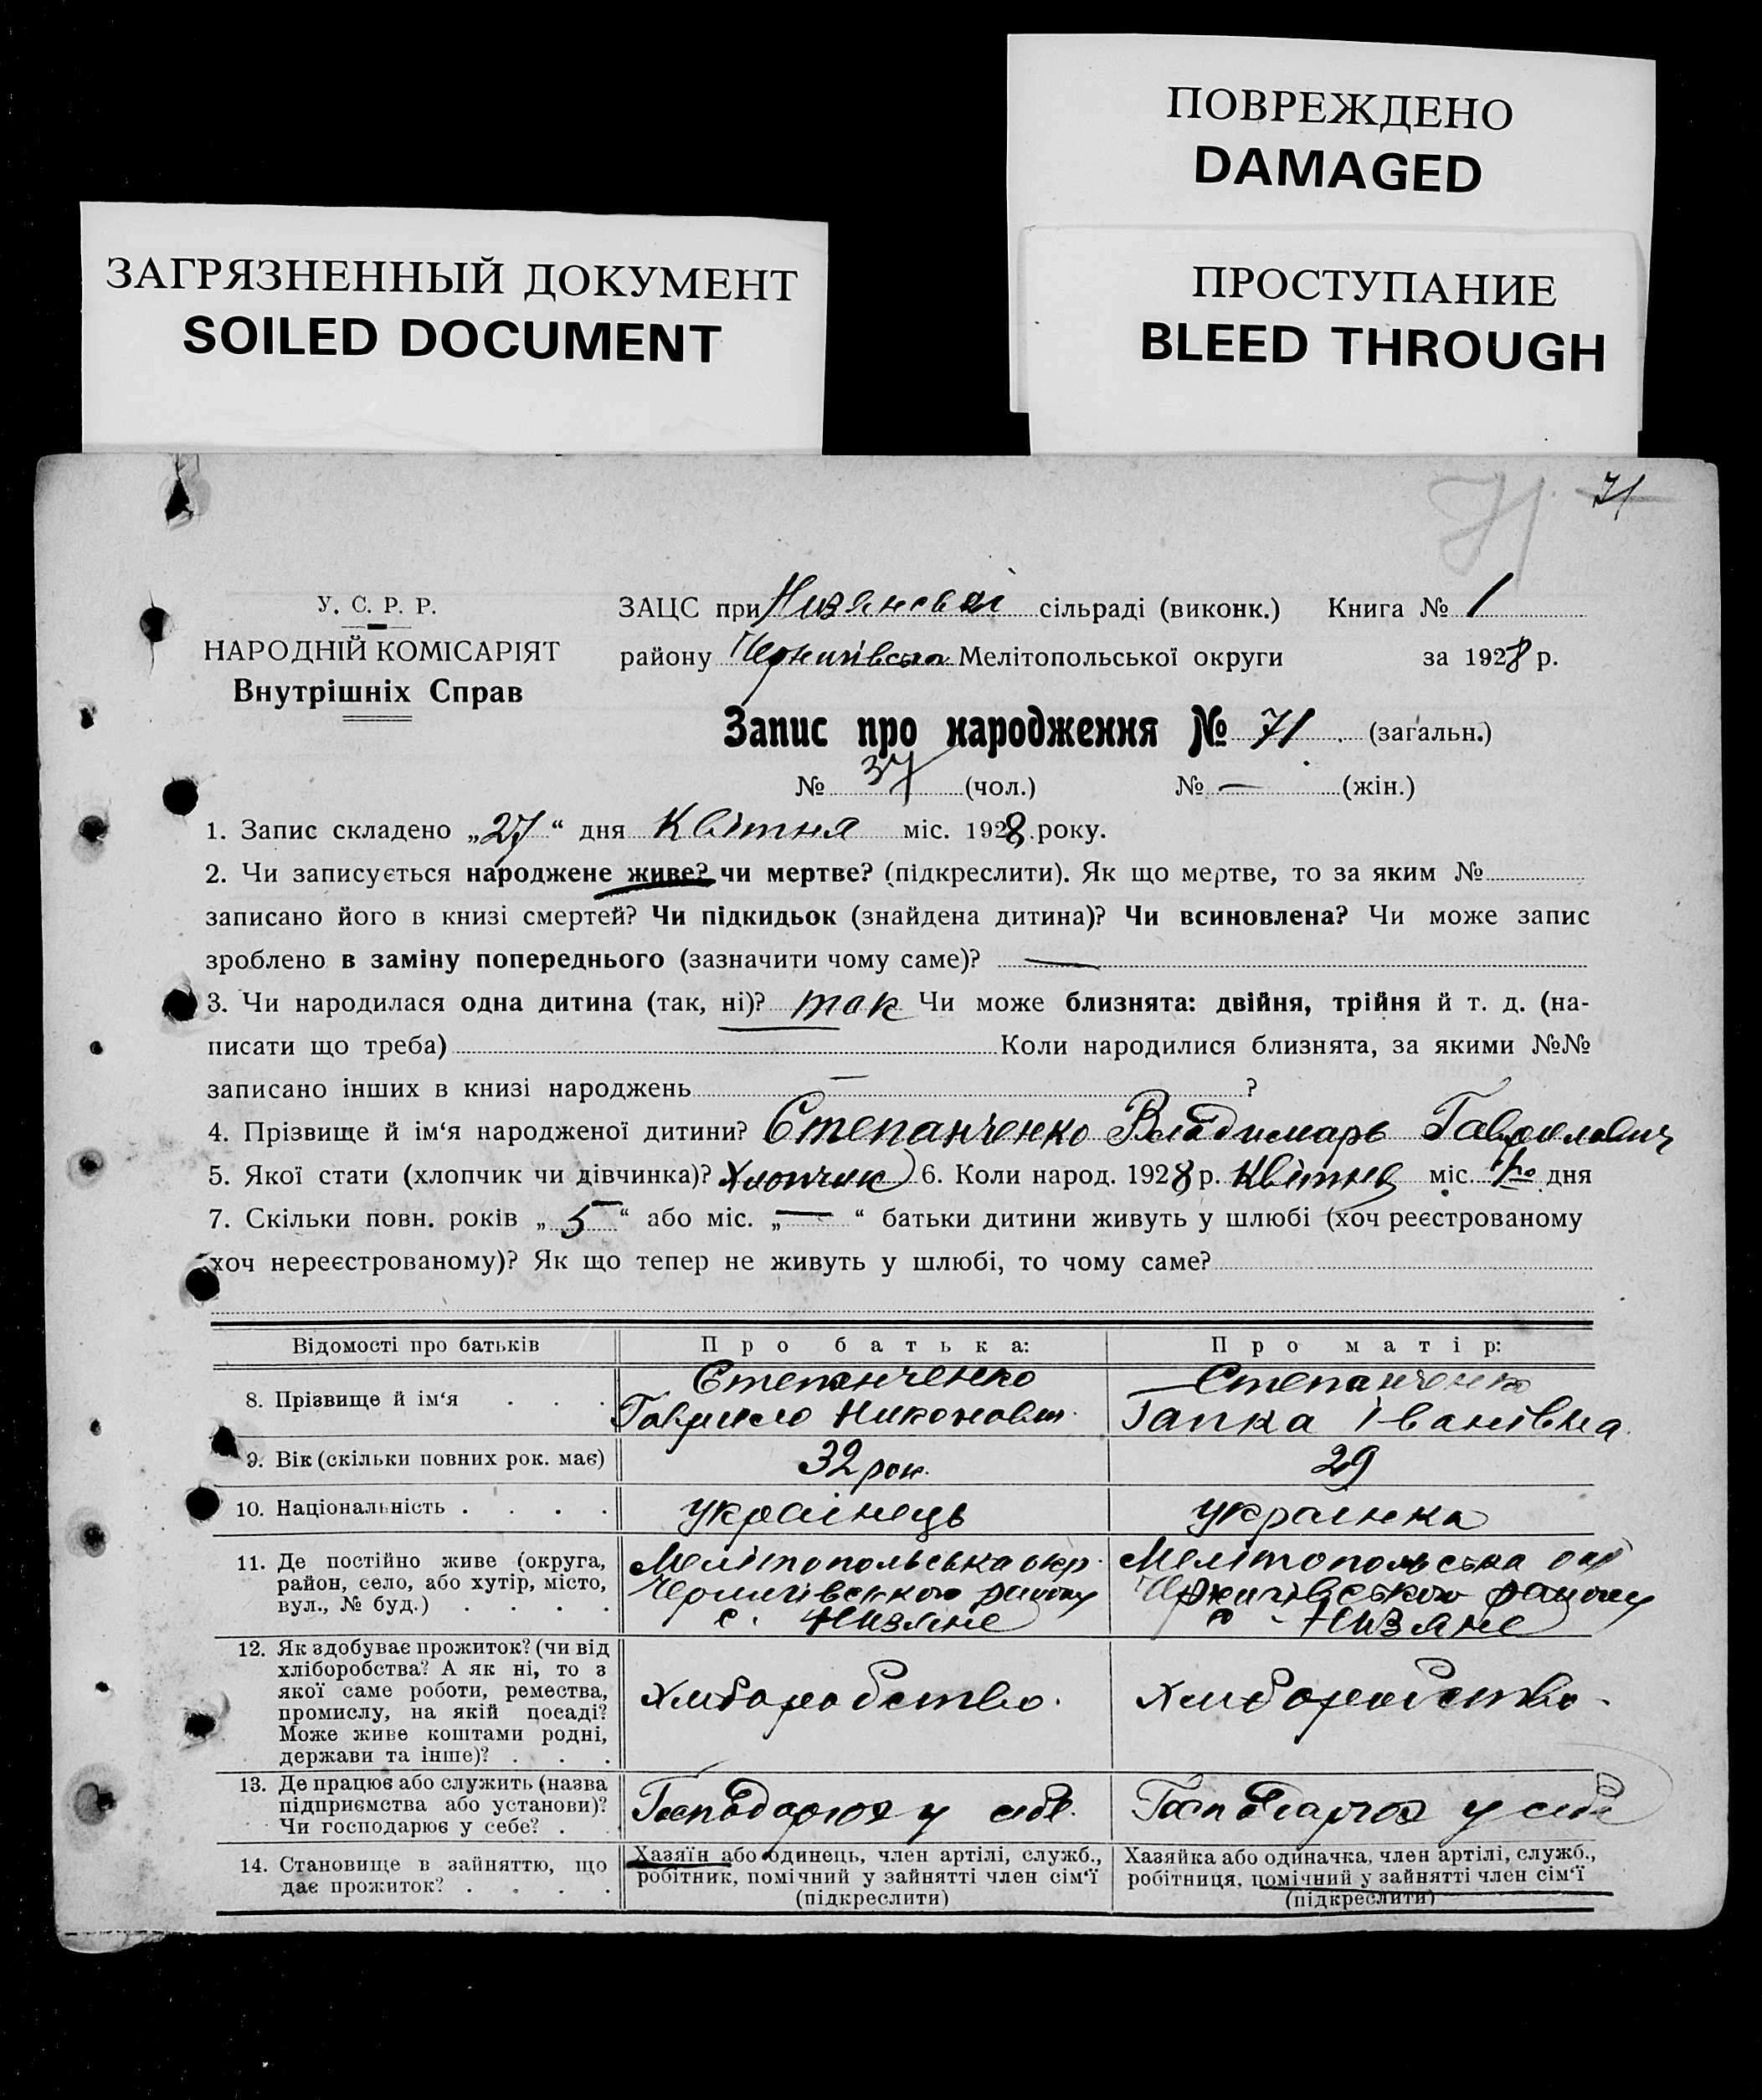 ПОВРЕЖДЕНО
DAMAGED
ЗАГРЯЗНЕННЫЙ ДОКУМЕНТ
SOILED DOCUMENT
ПРОСТУПАНИЕ
BLEED THROUGH
71 71
У. С. Р. Р.
НАРОДНІЙ КОМІСАРІЯТ
Внутрішніх Справ
ЗАЦС при Низянській сільраді (виконк.) Книга № 1
району Чернигівськ. Мелітопольської округи за 1928 р.
Запис про народження № 71 (загальн.)
№ 37 (чол.) № — (жін.)
1. Запис складено „27“ дня Квітня міс. 1928 року.
2. Чи записується народжене живе? чи мертве? (підкреслити). Як що мертве, то за яким №
записано його в книзі смертей? Чи підкидьок (знайдена дитина)? Чи всиновлена? Чи може запис
зроблено в заміну попереднього (зазначити чому саме)? —
3. Чи народилася одна дитина (так, ні)? так Чи може близнята: двійня, трійня й т. д. (на-
писати що треба) Коли народилися близнята, за якими №№
записано інших в книзі народжень — ?
4. Прізвище й ім‘я народженої дитини? Степанченко Владимарь Гаврилович
5. Якої стати (хлопчик чи дівчинка)? Хлопчик 6. Коли народ. 1928 р. Квітня міс. дня
7. Скільки повн. років „5“ або міс. „—“ батьки дитини живуть у шлюбі (хоч реєстрованому
хоч нереєстрованому)? Як що тепер не живуть у шлюбі, то чому саме?
Відомості про батьків Про батька: Про матір:
8. Прізвище й ім‘я Степанченко Гаврило Никонович Степанченко Гапка Іванівна
9. Вік (скільки повних рок. має) 32 рок. 29
10. Національність українець українка
11. Де постійно живе (округа,
район, село, або хутір, місто,
вул., № буд.)
Мелітопольська окр.
Чернигівського району
с. Низяне
Мелітопольська окр
Чернигівського району
с - Низяне
12. Як здобуває прожиток? (чи від
хліборобства? А як ні, то з
якої саме роботи, ремества,
промислу, на якій посаді?
Може живе коштами родні,
держави та інше)?
хліборобство. хліборобство.
13. Де працює або служить (назва
підприємства або установи)?
Чи господарює у себе?
Господарює у себе. Господарює у себе
14. Становище в зайняттю, що
дає прожиток?
Хазяїн або одинець, член артілі, служб.,
робітник, помічний у зайнятті член сім‘ї
(підкреслити)
Хазяйка або одиначка, член артілі, служб.,
робітниця, помічний у зайнятті член сім‘ї
(підкреслити)